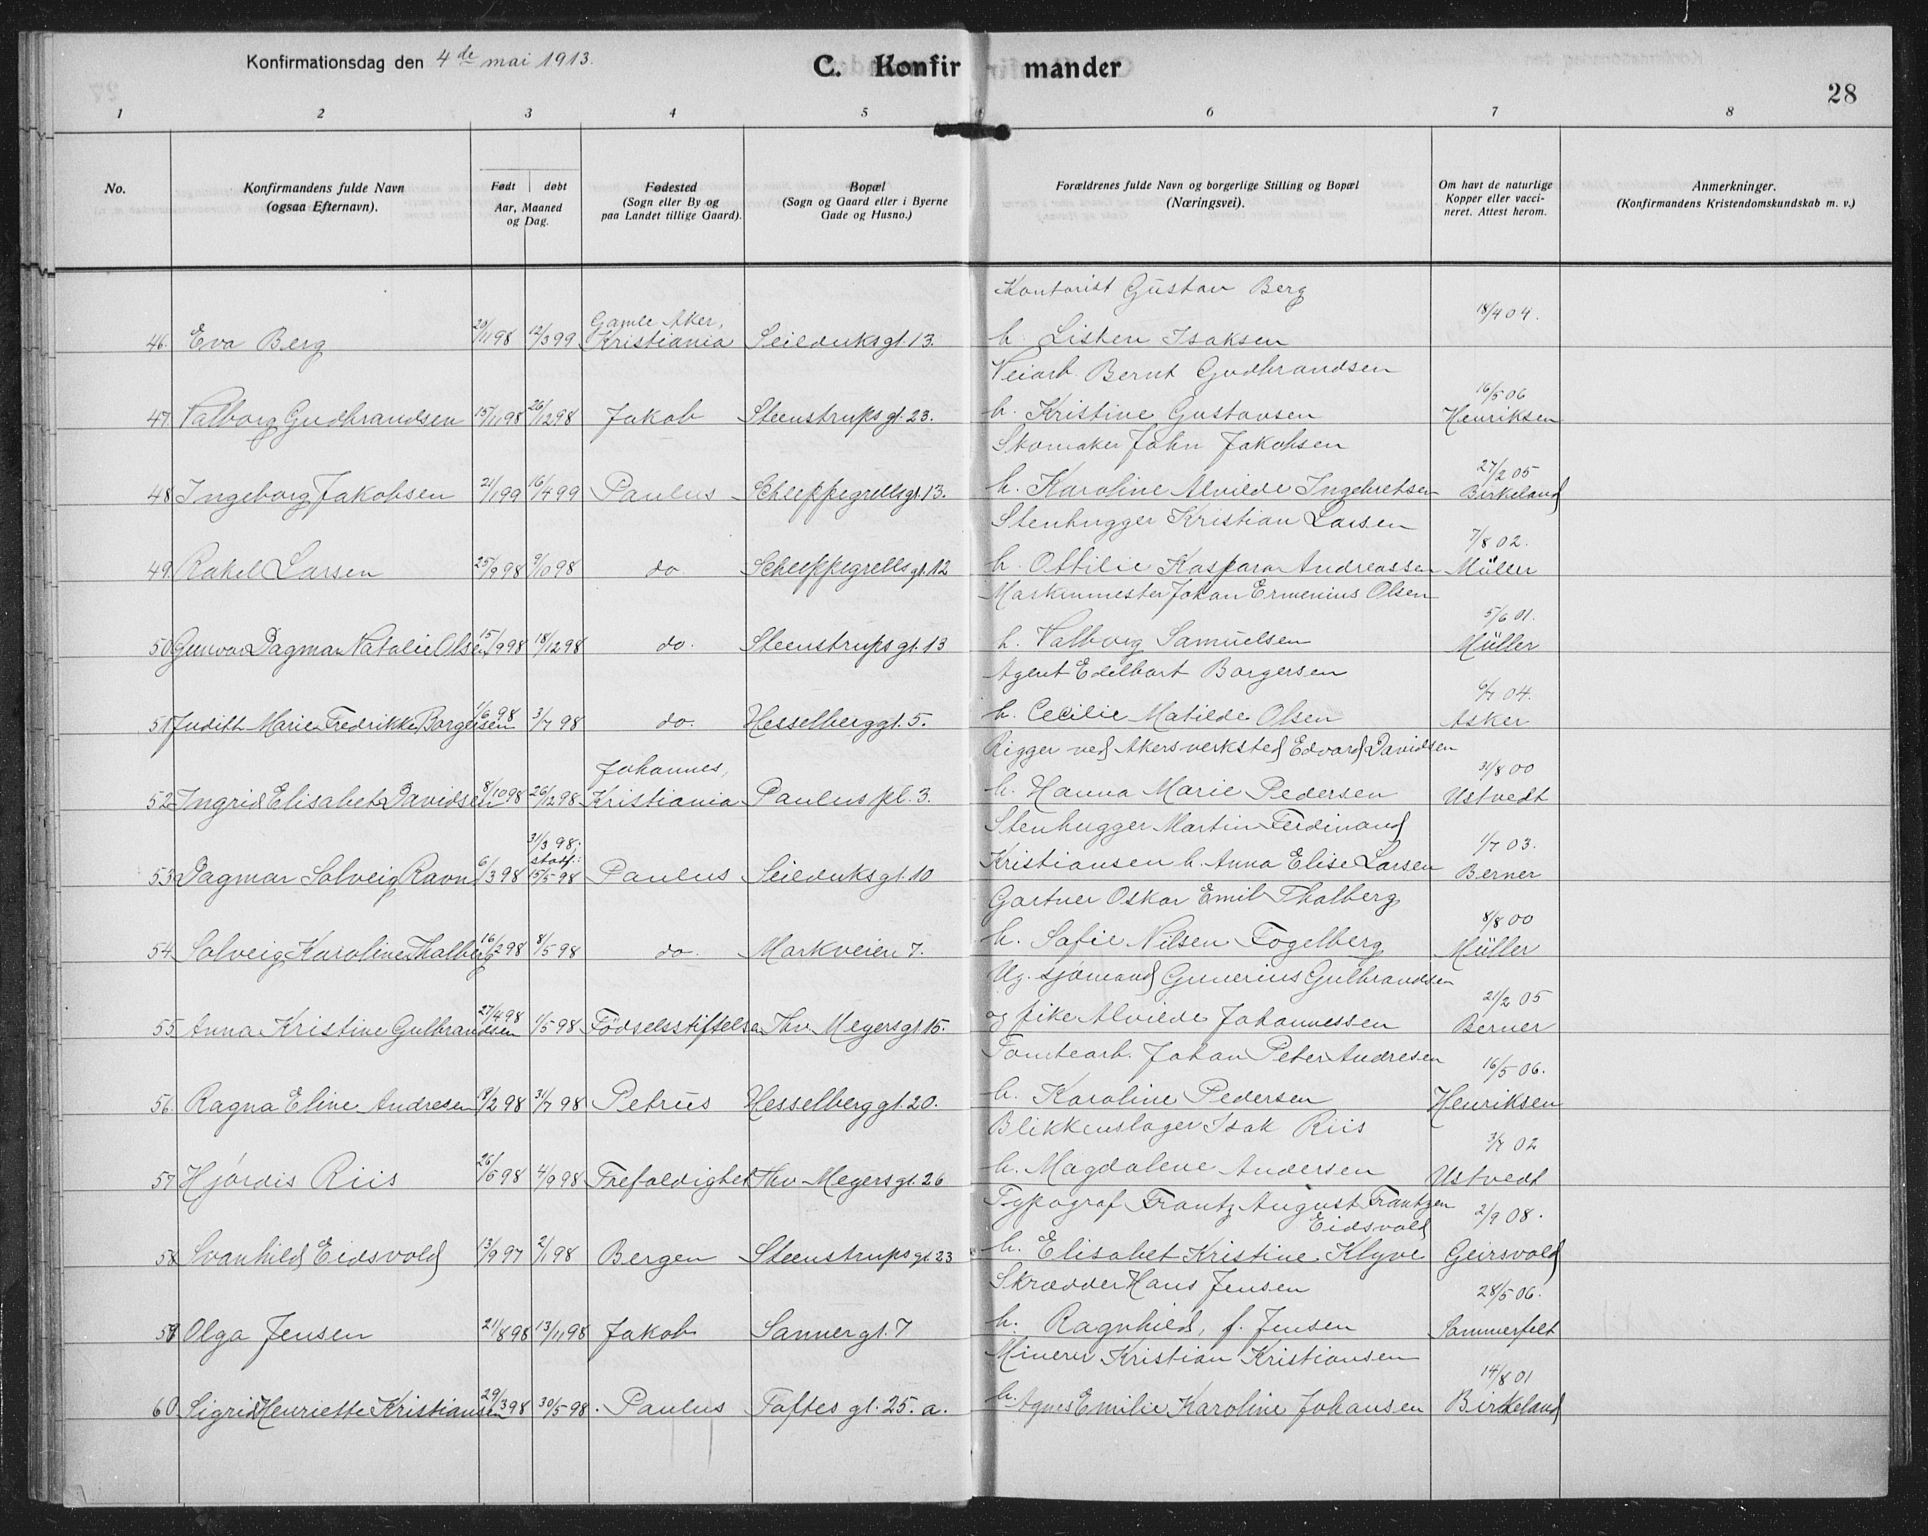 Konfirmationsdag den 4de mai 1913.
C. Konfirmander
28
1 2 3 4 5 6 7 8
No.
Konfirmandens fulde Navn
(ogsaa Efternavn).
Født | døbt
Aar, Maaned
og Dag.
Fødested
(Sogn eller By og
paa Landet tillige Gaard).
Bopæl
(Sogn og Gaard eller i Byerne
Gade og Husno.)
Forældrenes fulde Navn og borgerlige Stilling og Bopæl
(Næringsvei).
Om havt de naturlige
Kopper eller vacci-
neret. Attest herom.
Anmerkninger.
(Konfirmandens Kristendomskundskab m. v.)
Kontorist Gustav Berg
Gamle Aker, 18/9 04.
46. Eva Berg 29/11 98 12/3 99 Kristiania Seilduksgt. 13. h. Listen Isaksen
Veiarb. Bernt Gudbrandsen
16/5 06
47. Valborg Gudbrandsen 15/11 98 26/12 98 Jakob Steenstrups gt. 23. h. Kristine Gustavsen Henriksen
Skomaker John Jakobsen
27/2 05
48. Ingeborg Jakobsen 21/1 99 16/4 99 Paulus Schleppegrellsgt. 13. h. Karoline Alvilde Ingebretsen Birkeland
Stenhugger Kristian Larsen
7/8 02.
49. Rakel Larsen 25/9 98 9/10 98 do Schleppegrells gt. 12 h. Ottilie Kaspara Andreassen Müller
Maskinmester Johan Ermenius Olsen
5/6 01.
50. Gunvor Dagmar Natalie Olsen 15/9 98 18/12 98 do. Steenstrups gt. 13 h. Valborg Samuelsen Müller
Agent Edelbart Borgersen
6/7 04.
51. Judith Marie Fredrikke Borgersen 1/6 98 3/7 98 do. Hesselberggt. 5. h. Cecilie Matilde Olsen Asker
Rigger ved Akersverksted Edvard Davidsen
Johannes, 31/8 00
52. Ingrid Elisabet Davidsen 8/10 98 26/12 98 Kristiania Paulus pl. 3. h. Hanna Marie Pedersen Ustvedt
Stenhugger Martin Ferdinand
31/3 98; 1/7 03.
stadf.:
53. Dagmar Solveig Ravn 6/3 98 15/5 98 Paulus Seilduksgt. 10 Kristiansen h. Anna Elise Larsen Berner
Gartner Oskar Emil Thalberg
8/8 00
54. Solveig Karoline Thalberg 16/2 98 8/5 98 do. Markveien 7. h. Safie Nilsen Fogelberg Müller
Ug. sjømand Gunerius Gulbrandsen
21/2 05
55. Anna Kristine Gulbrandsen 27/4 98 1/5 98 Fødselsstiftelsen Thv. Meyersgt. 15. og pike Alvilde Johannessen Berner
Tomtearb. Johan Peter Andresen
16/5 06.
56. Ragna Eline Andresen 9/2 98 31/7 98 Petrus Hesselberggt. 20. h. Karoline Pedersen Henriksen
Blikkenslager Isak Riis
3/7 02
57. Hjørdis Riis 26/5 98 4/9 98 Trefoldighet Thv. Meyersgt. 26 h. Magdalene Andersen Ustvedt
Typograf Frantz August Frantzen
Eidsvold 2/9 08.
58. Svanhild Eidsvold 13/9 97 2/1 98 Bergen Steenstrups gt. 23 h. Elisabet Kristine Klyve Geirsvold
Skrædder Hans Jensen
28/5 06.
59. Olga Jensen 21/8 98 13/11 98 Jakob Sannergt. 7 h. Ragnhild, f. Jensen Sommerfelt
Minerer Kristian Kristiansen
14/8 01
60. Sigrid Henriette Kristiansen 29/3 98 30/5 98. Paulus Toftes gt. 25. a. h. Agnes Emilie Karoline Johansen Birkeland